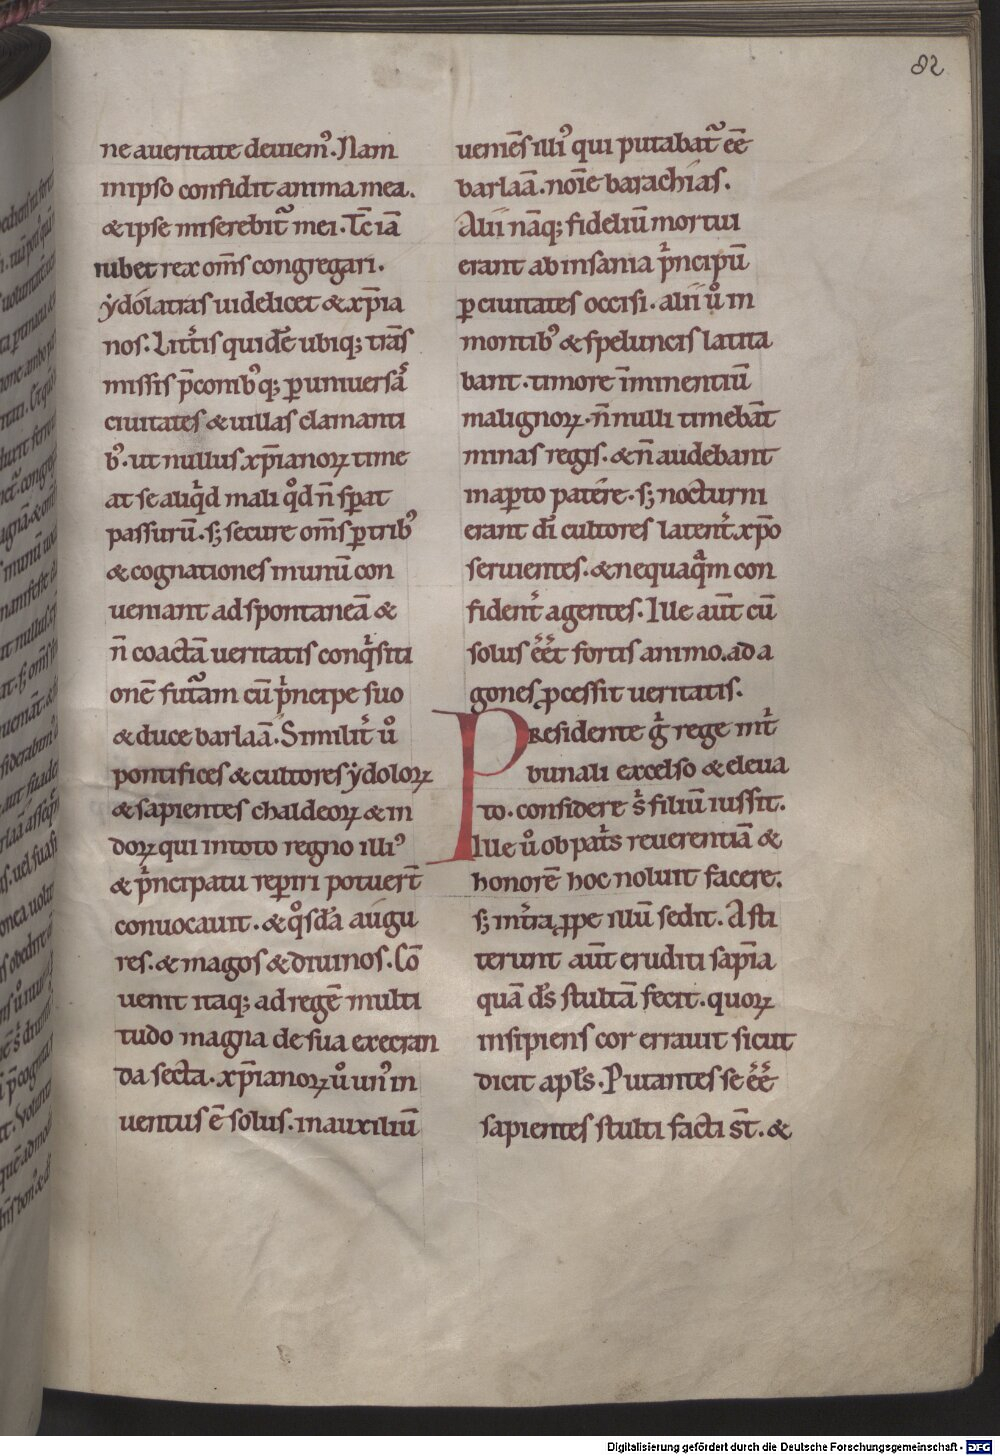 82
ne a ueritate deuiem᷒. Nam
in ipso confidit anima mea.
& ipse miserebit᷑ mei. Tc̄ iā
iubet rex om̄s congregari.
ẏdólatras uidelicet & xp̄ia
nos. Litt͛is quidē ubiq; trās
missis p̄conib᷒q; ꝑ uniuersā
ciuitates & uillas clamanti
b᷒. ut nullus xp̄ianoꝝ time
at se aliqͥd mali qͦd n̄ sꝑat
passurū. s; secure om̄s ꝑ trib᷒
& cognationes in unū con
ueniant ad spontaneā &
n̄ coactā ueritatis conqͥsiti
onē futᷓam cū pͥncipe suo
& duce barlaā. Similit͛ uͦ
pontifices & cultores ẏdoloꝝ
& sapientes chaldeoꝝ & in
doꝝ qui in toto regno illi᷒
& pͥncipatu reꝑiri potuer̄t
conuocauit. & qͦsdā augu
res. & magos & diuinos. Cō
uenit itaq; ad regē multi
tudo magna de sua execran
da secta. xp̄ianoꝝ uͦ un᷒ in
uentus ē solus. in auxiliū
ueniēs illi᷒ qui putabat᷑ eē
barlaā. noīe barachias.
Alii nāq; fideliū mortui
erant ab insania pͥncipū
ꝑ ciuitates occisi. alii uͦ in
montib᷒ & speluncis latita
bant. timore īminentiū
malignoꝝ. n̄nulli timebāt
minas regis. & n̄ audebant
in aꝑto patére. s; nocturni
erant dī cultores latent͛ xp̄o
seruientes. & nequaqᷓm con
fident͛ agentes. Ille aūt cū
solus eēt fortis animo. ad a
gones ꝓcessit ueritatis.
Presidente gͥ rege in tͥ
bunali excelso & eleua
to. considere sͥ filiū iussit.
Ille uͦ ob pat͛s reuerentiā &
honorē hoc noluit facere.
s; in t͛ra ꝓpe illū sedit. Asti
terunt aūt eruditi sap̄ia
quā d̄s stultā fecit. quoꝝ
insipiens cor errauit sicut
dicit apl̄s. Putantes se eē
sapientes stulti facti s̄t. &
Digitalisierung gefördert durch die Deutsche Forschungsgemeinschaft - DFG